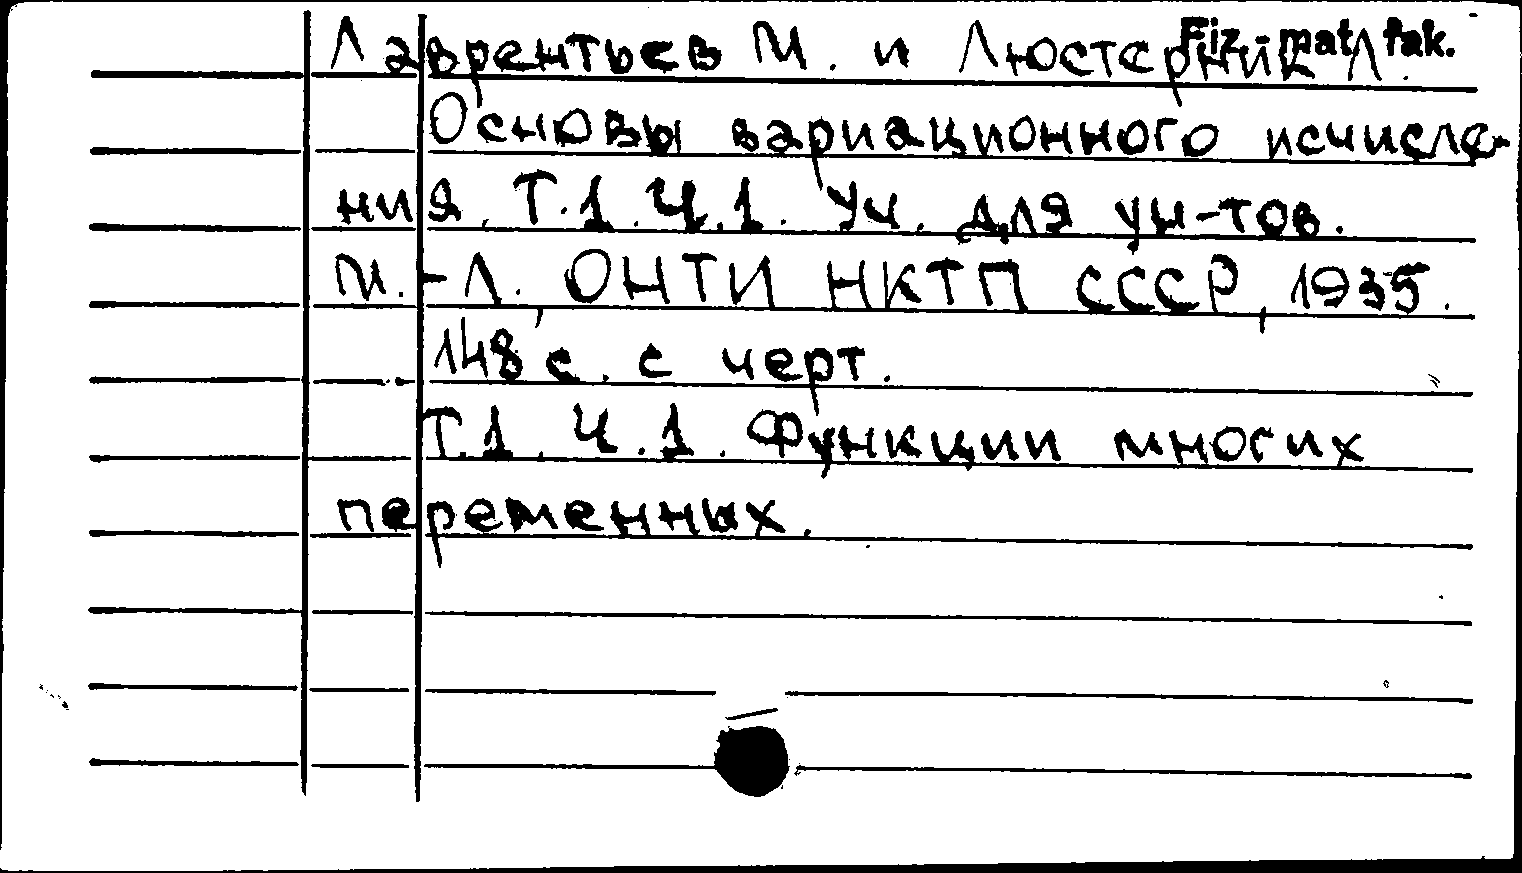 Лаврентьев М. и Люстерник Л.
Fiz.-mat. fak.
Основы вариационного исчисле-
ния. Т.1. Ч.1. Уч. для ун-тов.
М.-Л. ОНТИ НКТП СССР, 1935.
148 с. с черт.
Т.1. Ч.1. Функции многих
переменных.